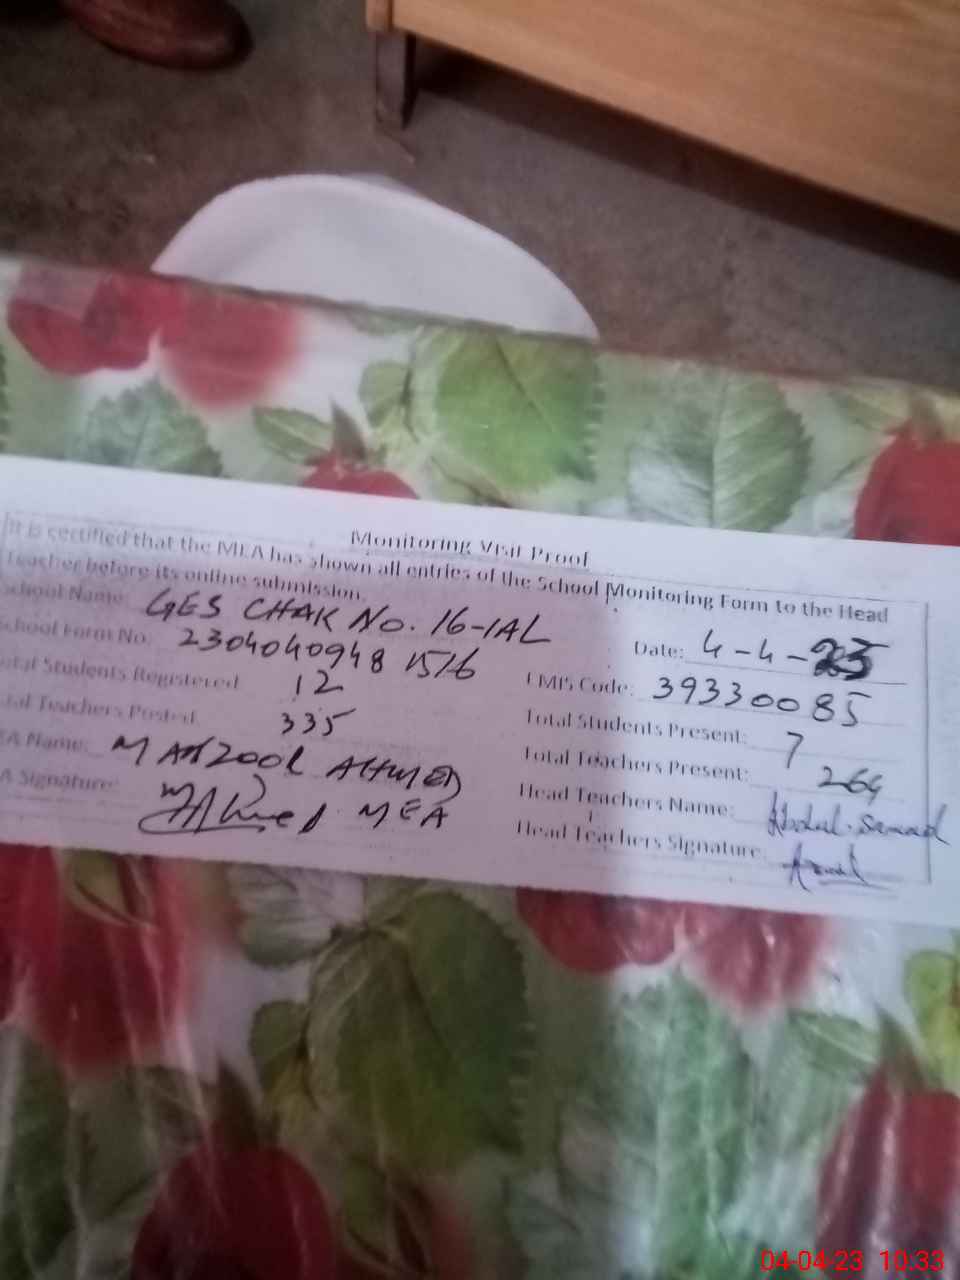 Monitoring Visit Proof
It is certified that the MEA has shown all entries of the School Monitoring Form to the Head
Teacher before its online submission.
School Name: GES CHAK No. 16-1AL
Date: 4-4-23
School Form No: 2304040948 1516
EMIS Code: 39330085
Total Students Registered 12
Total Students Present: 7
Total Teachers Posted 335
Total Teachers Present: 264
EA Name: MANZOOR AHMED
Head Teachers Name: Abdul Samad
EA Signature: MEA
Head Teachers Signature:
04-04-23 10:33